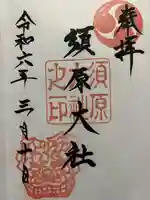 奉拝
須原大社
須原
大社
之印
令和六年三月十日